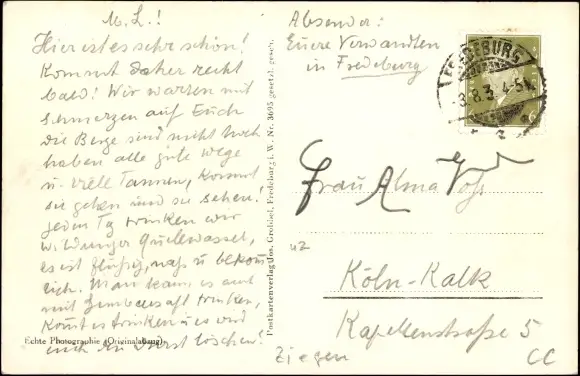 M. L.!
Hier ist es sehr schön!
Kommt daher recht
bald! Wir warten mit
schmerzen auf Euch
die Berge sind nicht hoch
haben alle gute Wege
u. viele Tannen, Kommt
sie gehen und zu sehen!
jeden Tag trinken wir
Wildunger Quellwasser,
es ist flüssig, naß u bekömm
lich. Man kann es auch
mit Himbeersaft trinken,
Kommt es trinken u es wird
euch den Durst löschen!
Echte Photographie (Originalabzug)
Postkartenverlag Jos. Grobbel, Fredeburg i. W. Nr. 3695 gesetzl. gesch.
Absender:
Euere Verwandten
in Fredeburg
FREDEBURG
3.8.3 4-5
Frau Alma Voß
Köln-Kalk
Kapellenstraße 5
Ziegen
CC